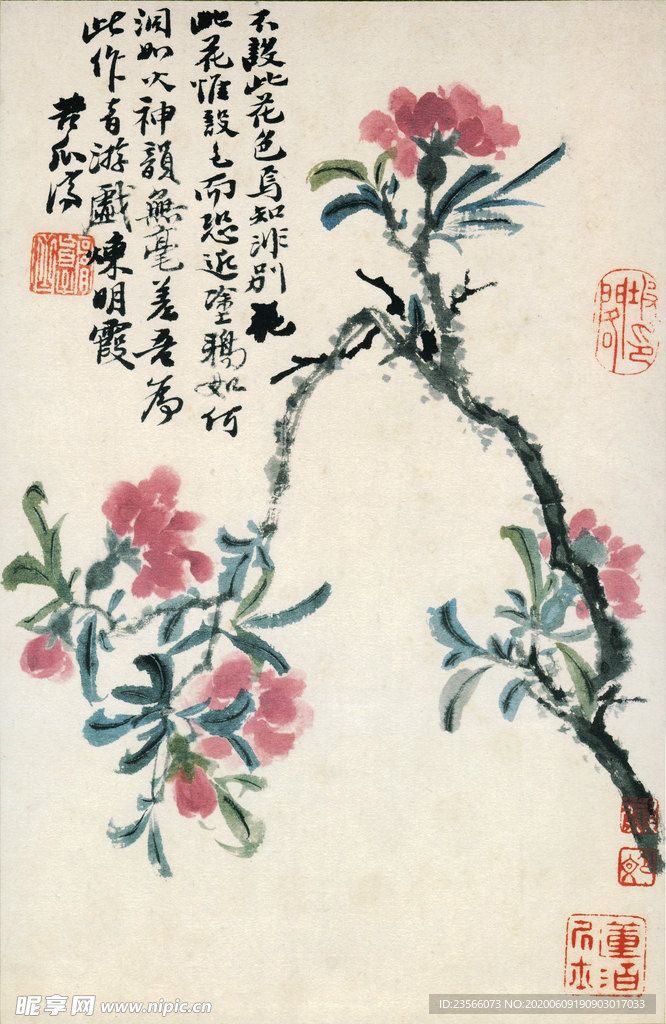 不設此花色焉知非別花
此花惟設色而恐近塗鴉如何
洞如火神韻無毫差吾為
此作音游戲煉明霞
苦瓜濟
昵享网 www.nipic.cn
ID:23566073 NO:20200609190903017033